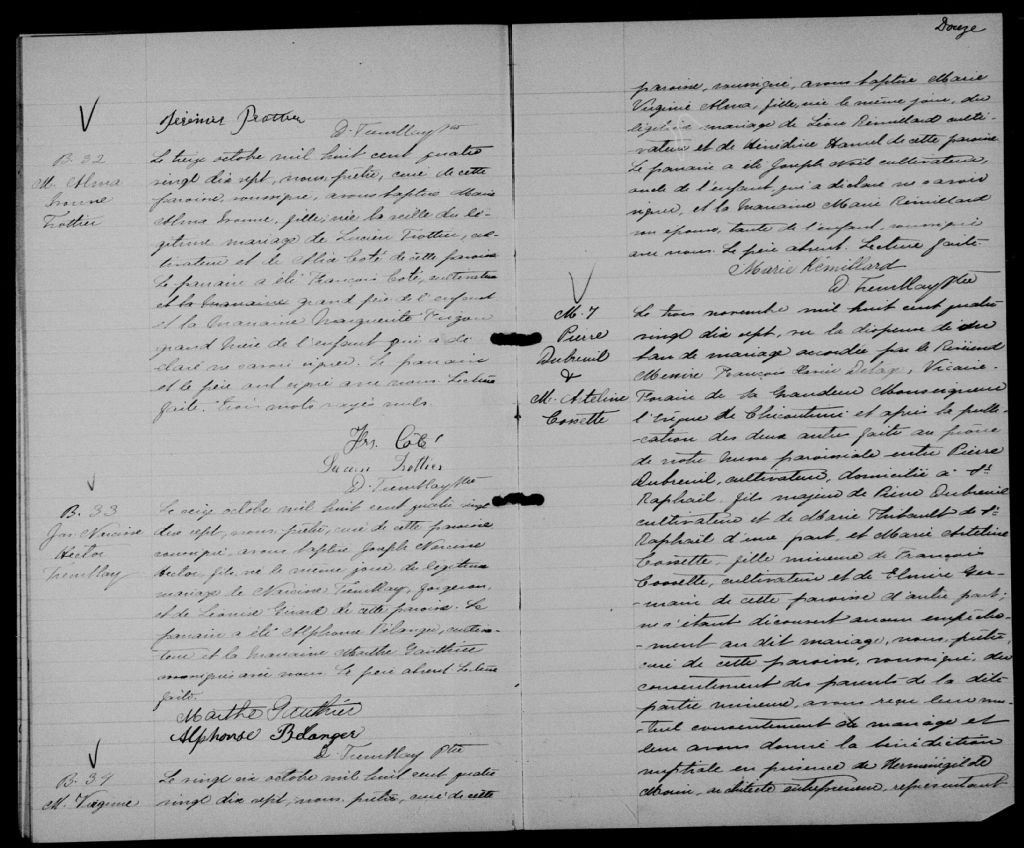 Jérémie Trottier
D. Tremblay Ptre
B. 32
M. Alma
Ivonne
Trottier
Le treize octobre mil huit cent quatre
vingt dix sept, nous, prêtre, curé de cette
paroisse, soussigné, avons baptisé Marie
Alma Ivonne, fille, née la veille du lé-
gitime mariage de Lucien Trottier, cul-
tivateur et de Alix Coté de cette paroisse
Le parrain a été François Coté, cultivateur
et la marraine grand père de l'enfant
et la marraine Marguerite
grand mère de l'enfant qui a dé-
claré ne savoir signer. Le parrain
et le père ont signé avec nous. Lecture
faite. Trois mots rayés nuls.
Frs. Côté
Lucien Trottier
D. Tremblay Ptre
B. 33
Jos. Narcisse
Hector
Tremblay
Le seize octobre mil huit cent quatre vingt
dix sept, nous, prêtre, curé de cette paroisse
soussigné, avons baptisé Joseph Narcisse
Hector, fils, né le même jour, du légitime
mariage de Narcisse Tremblay, forgeron,
et de Léonise Girard de cette paroisse. Le
parrain a été Alphonse Bélanger, cultiva-
teur et la marraine Marthe Gauthier
soussignés avec nous. Le père absent. Lecture
faite.
Marthe Gauthier
Alphonse Belanger
D. Tremblay Ptre
B. 34
M. Virginie
Le vingt six octobre mil huit cent quatre
vingt dix sept, nous, prêtre, curé de cette
Douze
paroisse, soussigné, avons baptisé Marie
Virginie Alma, fille, née le même jour, du
légitime mariage de Léon Rémillard culti-
vateur et de Hamel de cette paroisse
Le parrain a été Joseph Noël cultivateur,
oncle de l'enfant, qui a déclaré ne savoir
signer, et la marraine Marie Rémillard
son épouse, tante de l'enfant, soussignée
avec nous. Le père absent. Lecture faite
Marie Rémillard
D Tremblay Ptre
M. 7
Pierre
Dubreuil
&
M. Arteline
Cossette
Le trois novembre mil huit cent quatre
vingt dix sept, vu la dispense de un
ban de mariage accordée par le Révérend
Messire François Xavier Delage, Vicaire-
Forain de Sa Grandeur Monseigneur
l'évêque de Chicoutimi et après la publi-
cation des deux autres faite au prône
de notre messe paroissiale entre Pierre
Dubreuil, cultivateur, domicilié à St
Raphaël, fils majeur de Pierre Dubreuil
cultivateur et de Marie Thibault de St
Raphaël d'une part, et Marie Arteline
Cossette, fille mineure de François
Cossette, cultivateur et de Elmire Ger-
main de cette paroisse d'autre part;
ne s'étant découvert aucun empêche-
-ment au dit mariage, nous, prêtre,
curé de cette paroisse, soussigné, du
consentement des parents de la dite
partie mineure, avons reçu leur mu-
tuel consentement de mariage et
leur avons donné la bénédiction
nuptiale en présence de Herménégilde
Morin, architecte entrepreneur, représentant